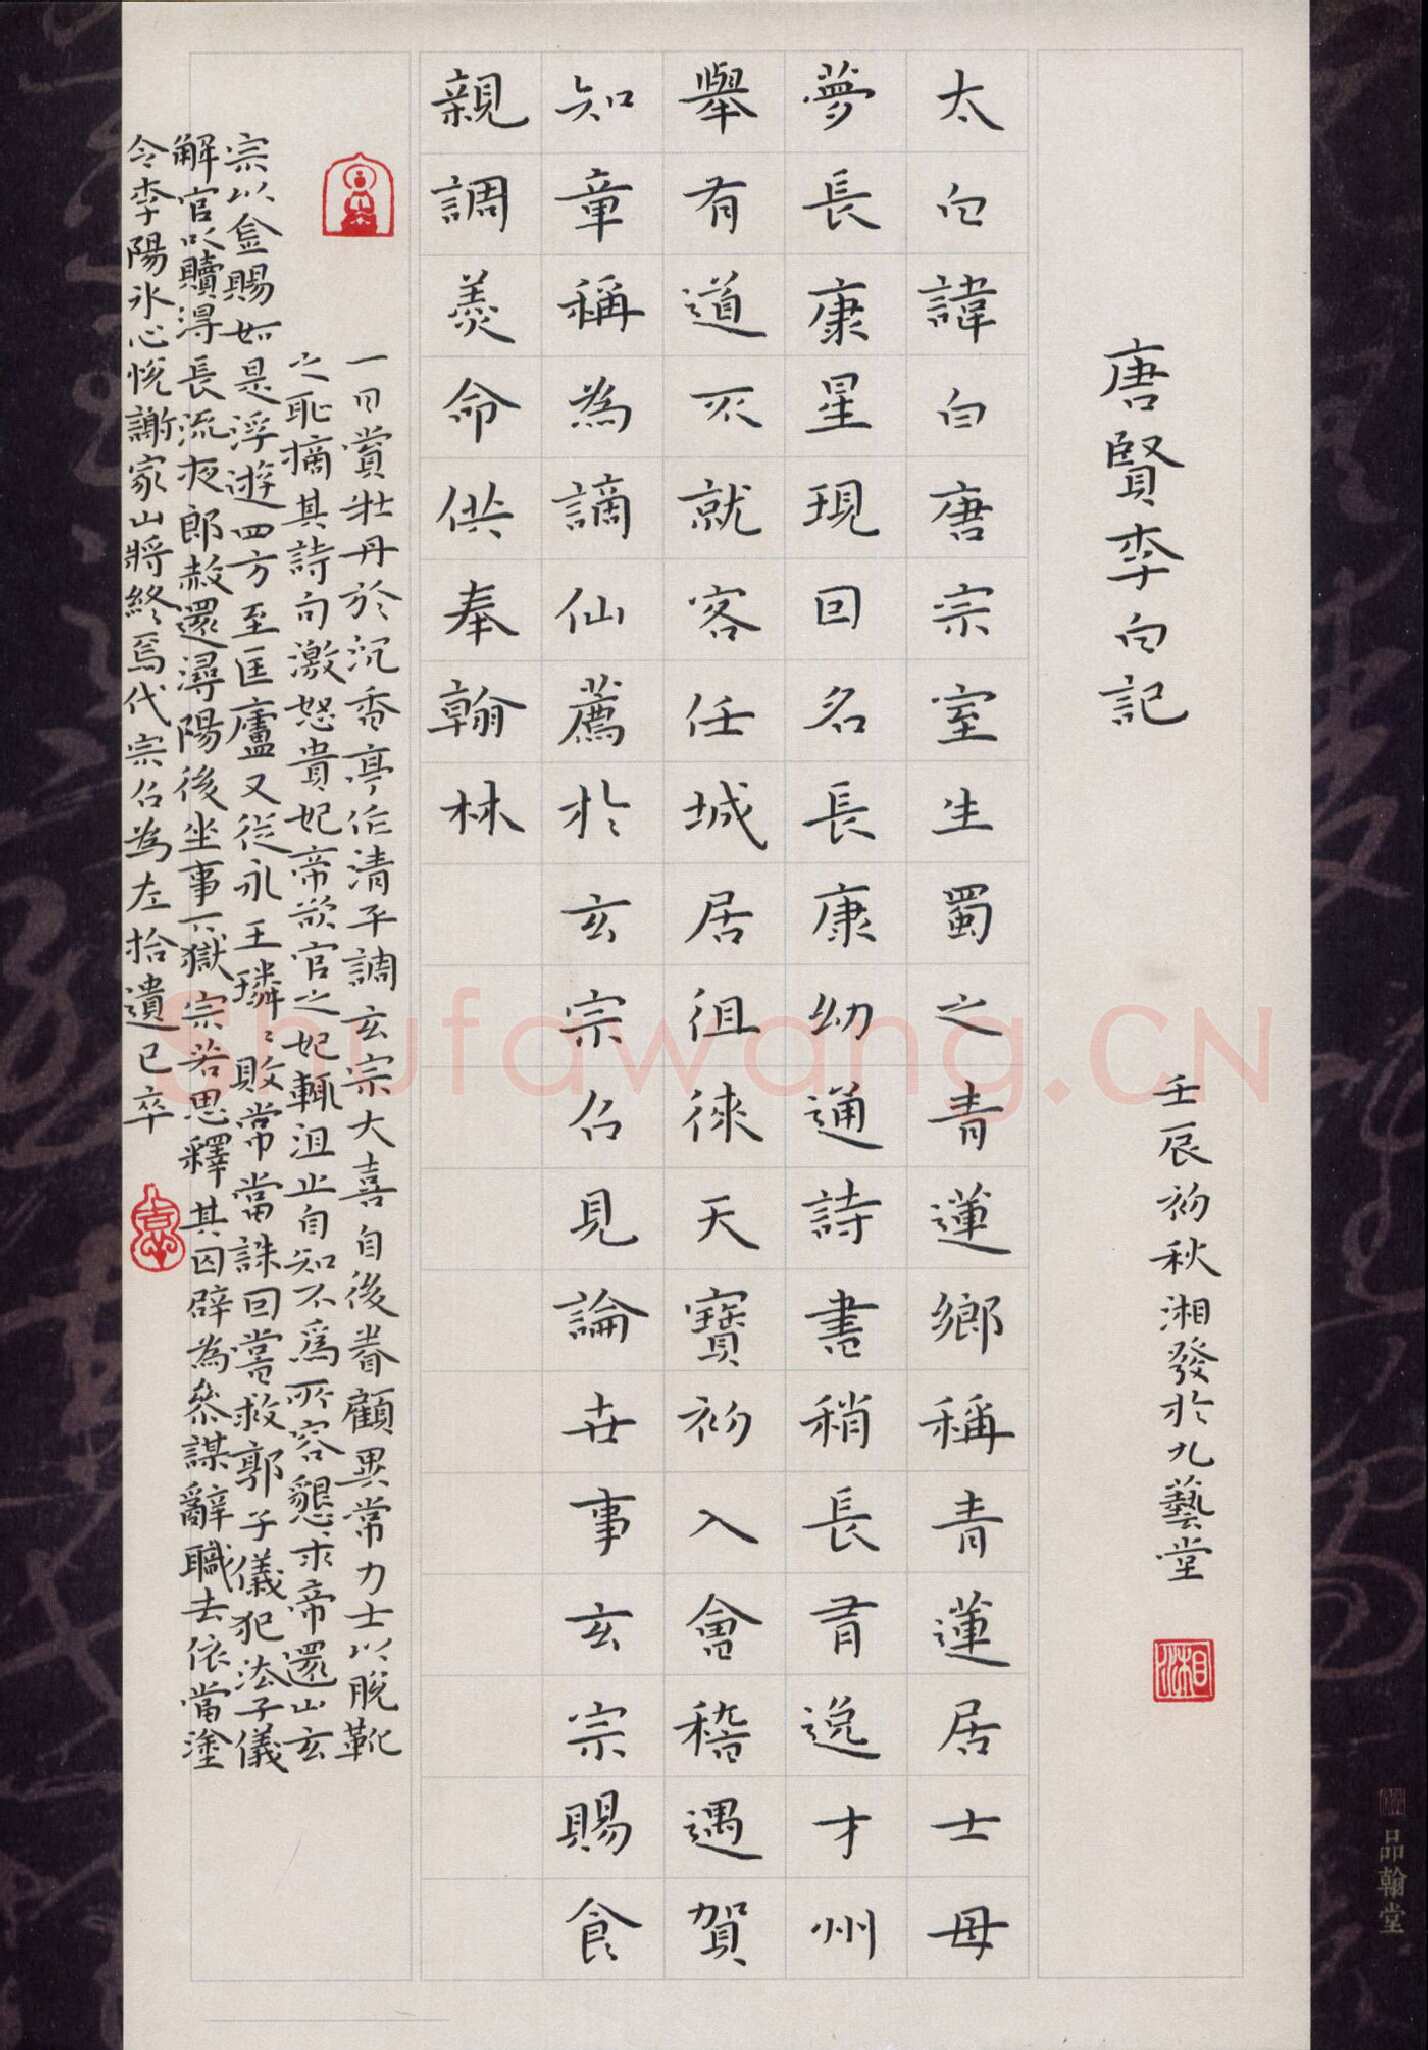 唐賢李白記
壬辰初秋湘發於九藝堂
太白諱白唐宗室生蜀之青蓮鄉稱青蓮居士母
夢長康星現回名長康幼通詩書稍長有逸才州
舉有道不就客任城居徂徠天寶初入會稽遇賀
知章稱為謫仙薦於玄宗召見論世事玄宗賜食
親調羹命供奉翰林
一日賞牡丹於沉香亭作清平調玄宗大喜自後眷顧異常力士以脫靴
之恥摘其詩句激怒貴妃帝欲官之妃輒沮止自知不爲所容懇求帝還山玄
宗以金賜如是浮遊四方至匡廬又從永王璘〻敗常當誅回嘗救郭子儀犯法子儀
解官以贖得長流夜郎赦還潯陽後坐事下獄宗若思釋其囚辟為參謀辭職去依當塗
令李陽冰心悅謝家山將終焉代宗召為左拾遺已卒
湘
品翰堂
Shufawang.CN